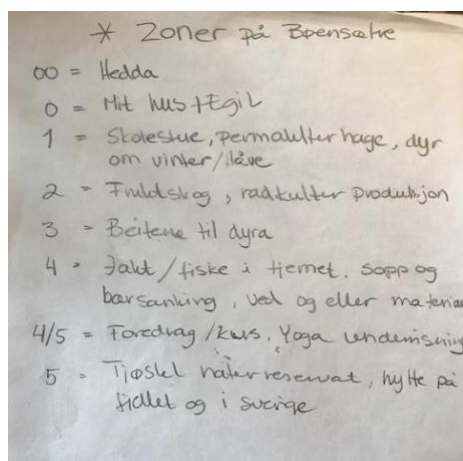 * Zoner på Bøensætre
00 = Hedda
0 = Mit hus + Egil
1 = Skolestue, permakulter hage, dyr
om vinter/låve
2 = Fruldskog, radkulter produksjon
3 = Beitene til dyra
4 = Jakt/fiske i tjernet. Sopp og
bærsanking, ved og eller materia
4/5 = Foredrag/kurs, Yoga undervisning
5 = naturreservat, hytte på
fjellet og i sverige